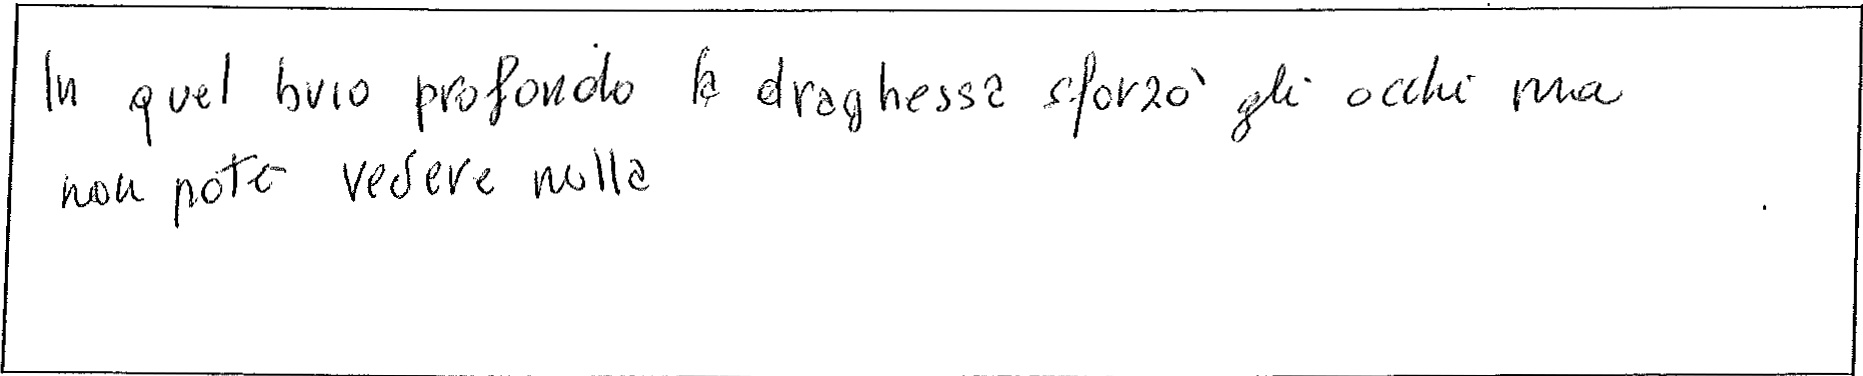 In quel buio profondo la draghessa sforzò gli occhi ma
non pote vedere nulla